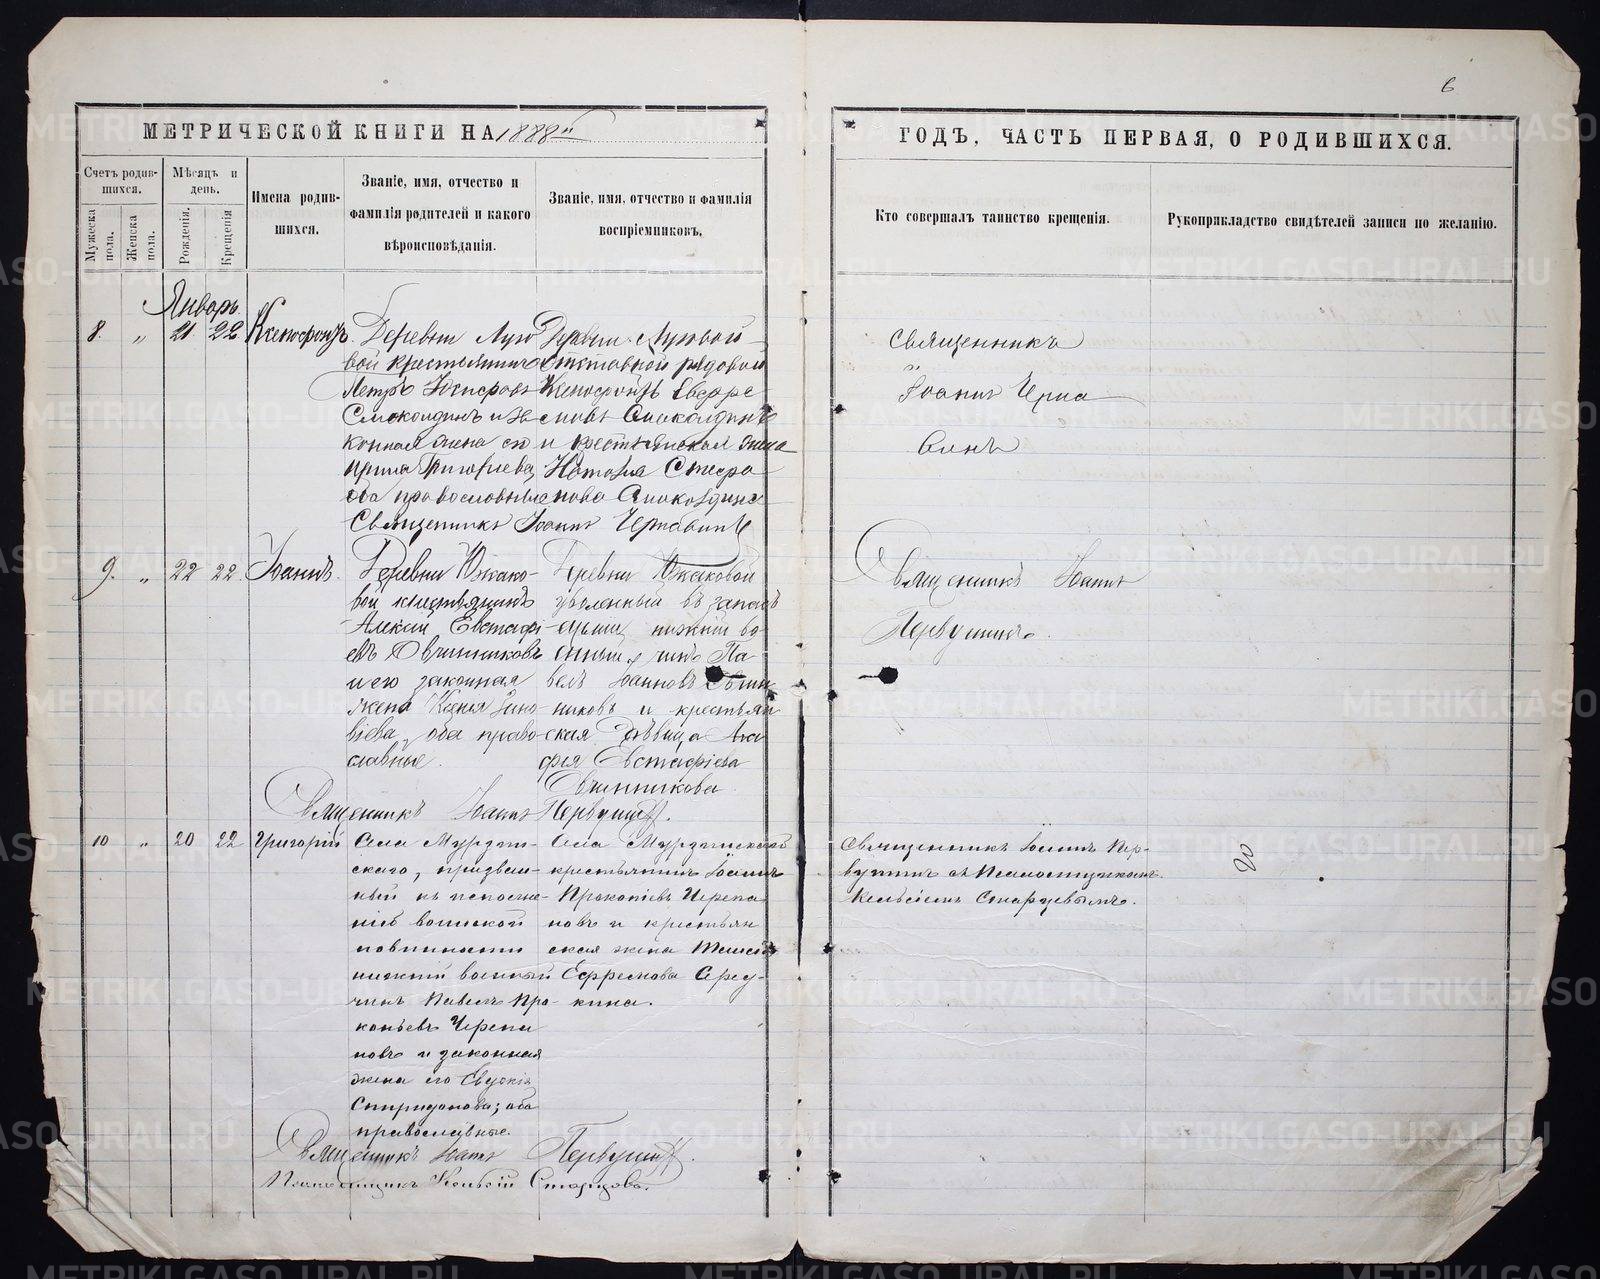 6
МЕТРИЧЕСКОЙ КНИГИ НА 1888й
ГОДЪ, ЧАСТЬ ПЕРВАЯ, О РОДИВШИХСЯ.
Счетъ родив-
шихся.
Мужеска пола.
Женска пола.
Мѣсяцъ и
день.
Рожденія.
Крещенія
Имена родив-
шихся.
Званіе, имя, отчество и
фамилія родителей и какого
вѣроисповѣданія.
Званіе, имя, отчество и фамилія
воспріемниковъ.
Кто совершалъ таинство крещенія.
Рукоприкладство свидѣтелей записи по желанію.
Январь
8. „ 21 22 Ксенофонтъ.
Деревни Луго
вой крестьянинъ
Петръ
и за
конная жена его
Ирина Григориева,
оба православные
Деревни Луговой
отставной рядовой
Ксенофонтъ Евдре
и крестьянская жена
Наталія Стефа
нова
Священникъ Іоаннъ Чернавинъ
Священникъ
Іоаннъ Черна
винъ
9. „ 22 22. Іоаннъ.
Деревни Южако-
вой крестьянинъ
Алексій Евстафі-
евъ Овчинниковъ
и его законная
жена Ксенія Зино-
віева, оба право-
славные.
Деревни Южаковой
уволенный въ запасъ
арміи, нижній во-
енный чинъ Па-
велъ Іоанновъ Овчин-
никовъ и крестьян
ская дѣвица Ага
фія Евстафіева
Овчинникова.
Священникъ Іоаннъ Первушинъ.
Священникъ Іоаннъ
Первушинъ.
10 „ 20 22 Григорій
Села Мурзин-
скаго, призван-
ный къ исполне-
нію воинской
повинности
нижній военный
чинъ Павелъ Про-
копьевъ Черепа
новъ и законная
жена его Евдокія
Спиридонова; оба
православные.
Села Мурзинскаго
крестьянинъ Іоаннъ
Прокопіевъ Черепа
новъ и крестьян
ская жена
Ефремова Сере-
кина.
Священникъ Іоаннъ Первушинъ.
Псаломщикъ Кельсій Старцевъ.
Священникъ Іоаннъ Пер-
вушинъ съ Псаломщикомъ
Кельсіемъ Старцевымъ.
METRIKI.GASO-URAL.RU